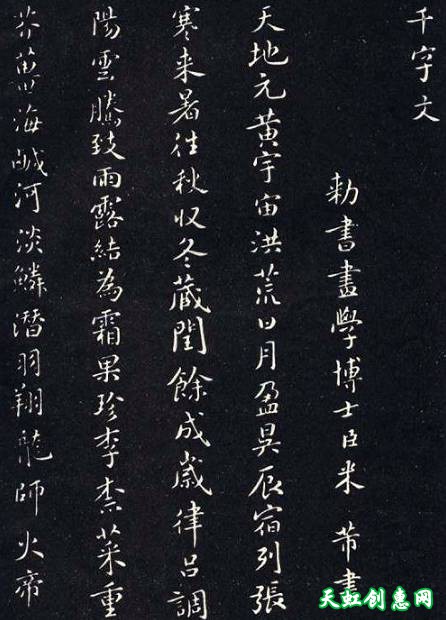 千字文
勅書畫學博士臣米芾書
天地元黃宇宙洪荒日月盈昃辰宿列張
寒来暑往秋収冬蔵閏餘成歲律呂調
陽雲騰致雨露結為霜果珍李柰菜重
芥薑海鹹河淡鱗潜羽翔龍師火帝
天虹创惠网